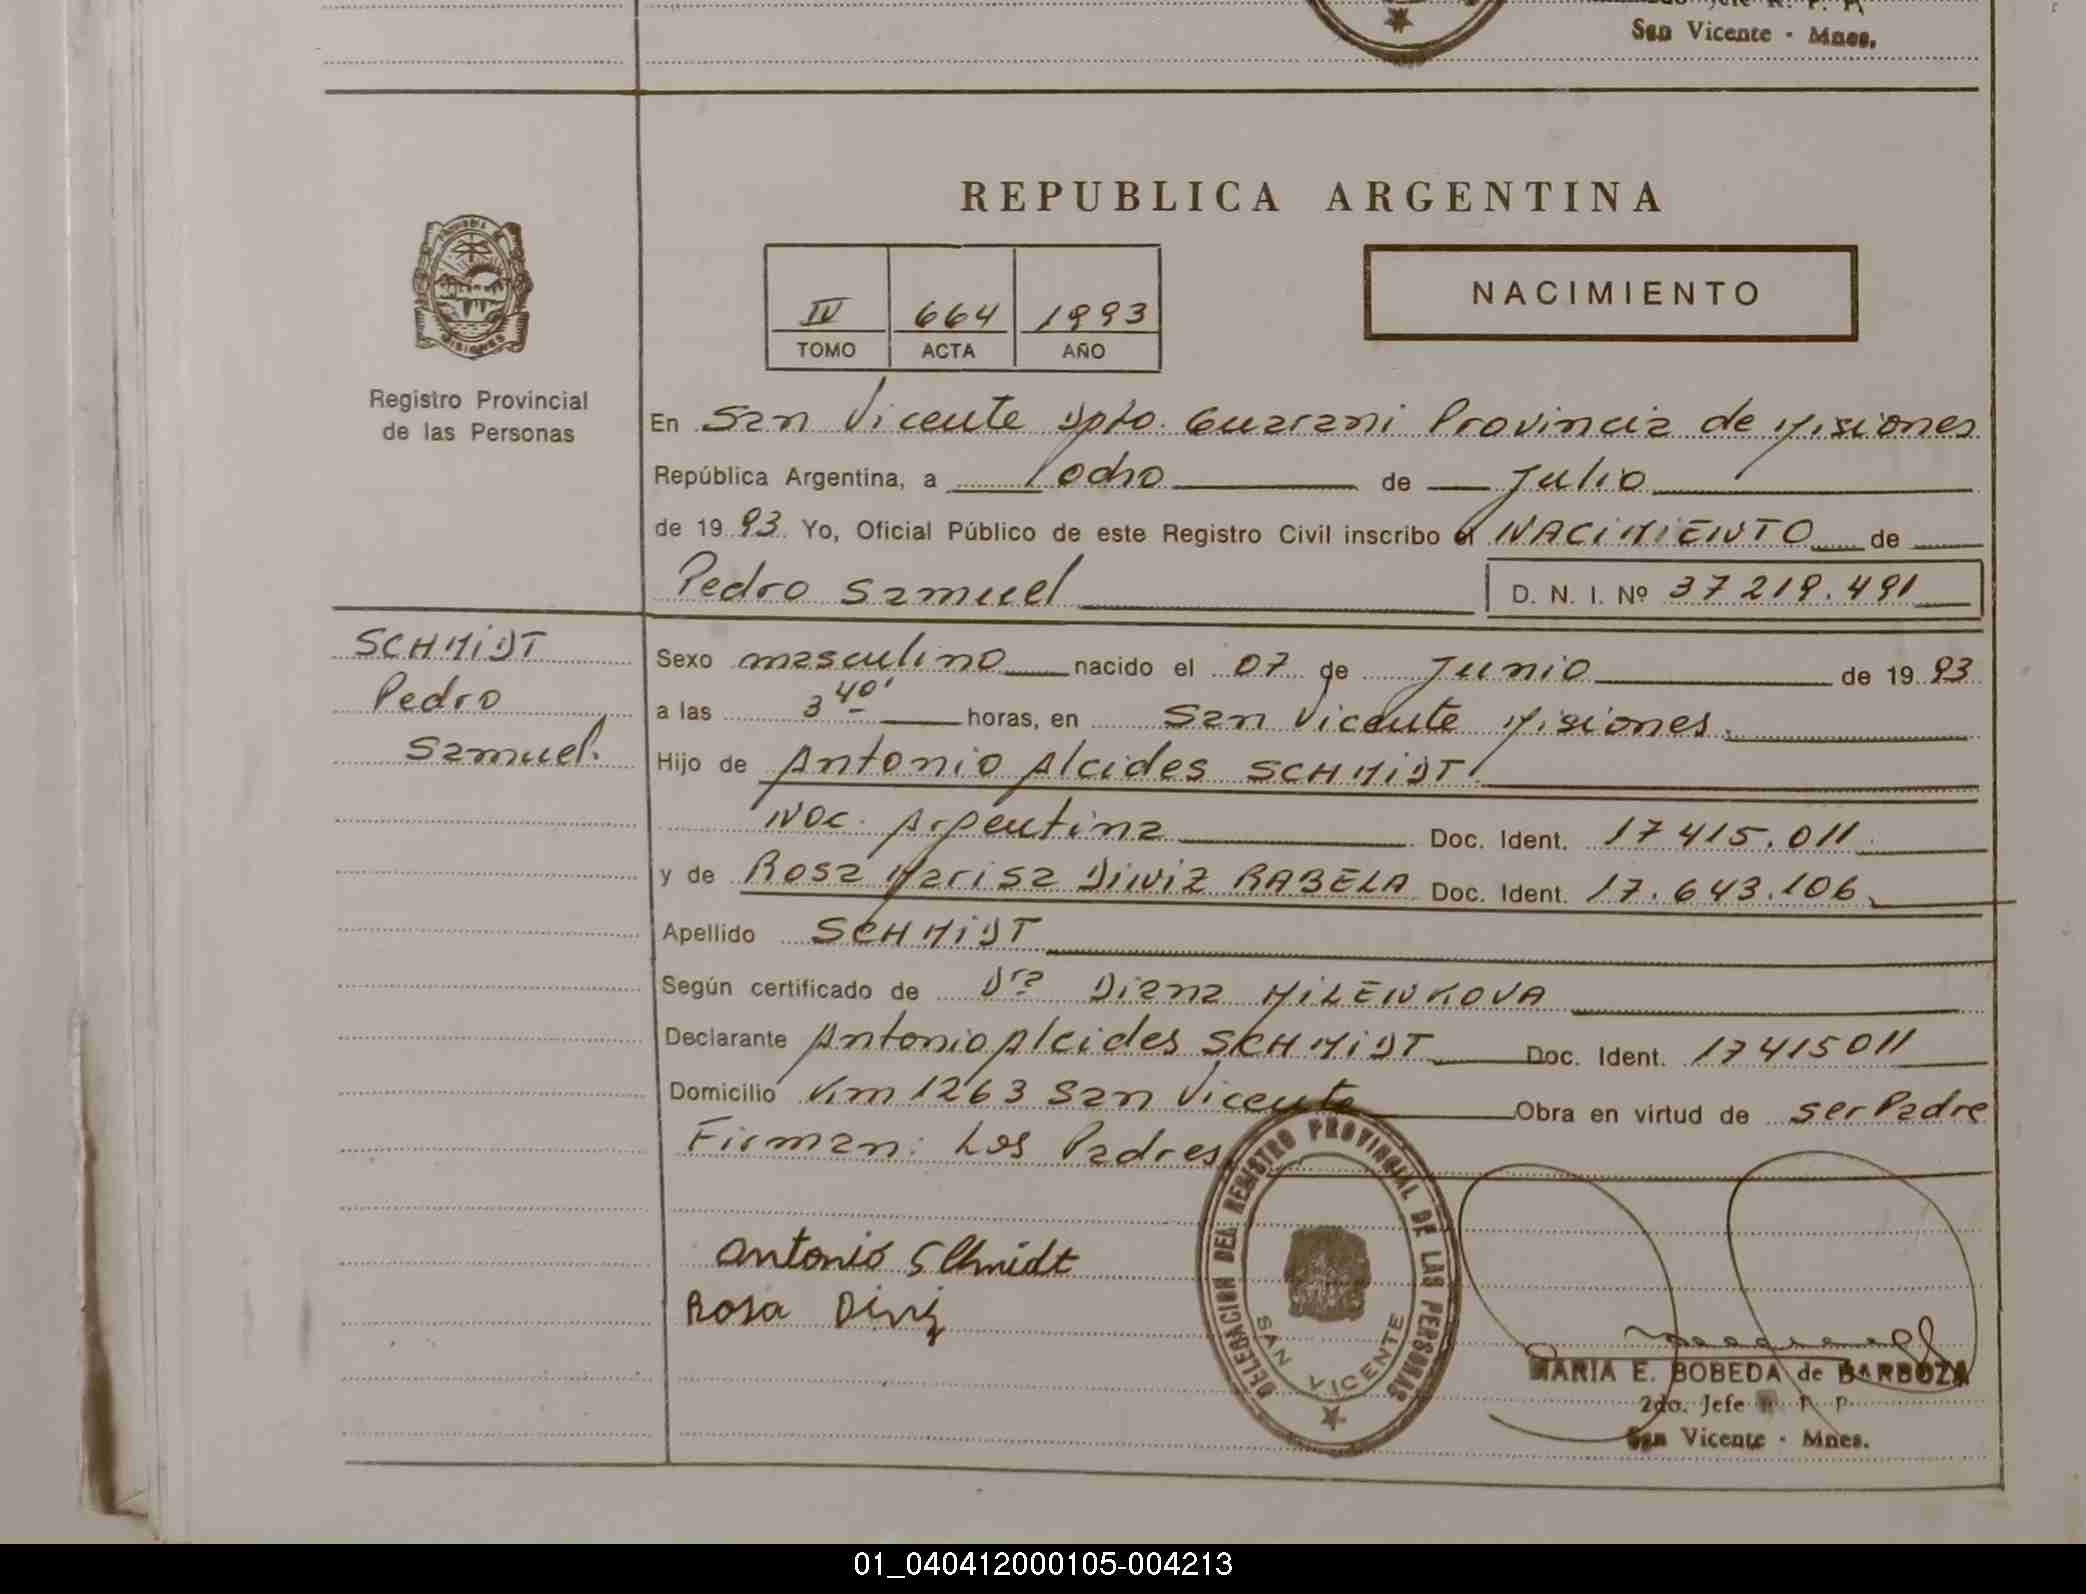 San Vicente - Mnes.
REPUBLICA ARGENTINA
IV 664 1993
TOMO ACTA AÑO
NACIMIENTO
Registro Provincial
de las Personas
En San Vicente Dpto. Guarani Provincia de Misiones
República Argentina, a ocho de Julio
de 1993 Yo, Oficial Público de este Registro Civil inscribo el NACIMIENTO de
Pedro Samuel D. N. I. Nº 37 219.491
SCHMIDT
Pedro
Samuel.
Sexo masculino nacido el 07 de Junio de 1993
a las 3 40' horas, en San Vicente Misiones.
Hijo de Antonio Alcides SCHMIDT
Nac. Argentina Doc. Ident. 17 415.011
y de Rosa Marisa DINIZ RABELA Doc. Ident. 17.643.106
Apellido SCHMIDT
Según certificado de Dra Diana MILENKOVA
Declarante Antonio Alcides SCHMIDT Doc. Ident. 17415011
Domicilio Km 1263 San Vicente Obra en virtud de ser Padre
Firman: Los Padres
Antonio Schmidt
Rosa Diniz
DELEGACION DEL REGISTRO PROVINCIAL DE LAS PERSONAS
SAN VICENTE
MARIA E. BOBEDA de BARBOZA
2do. Jefe R. P. P.
San Vicente - Mnes.
01_040412000105-004213